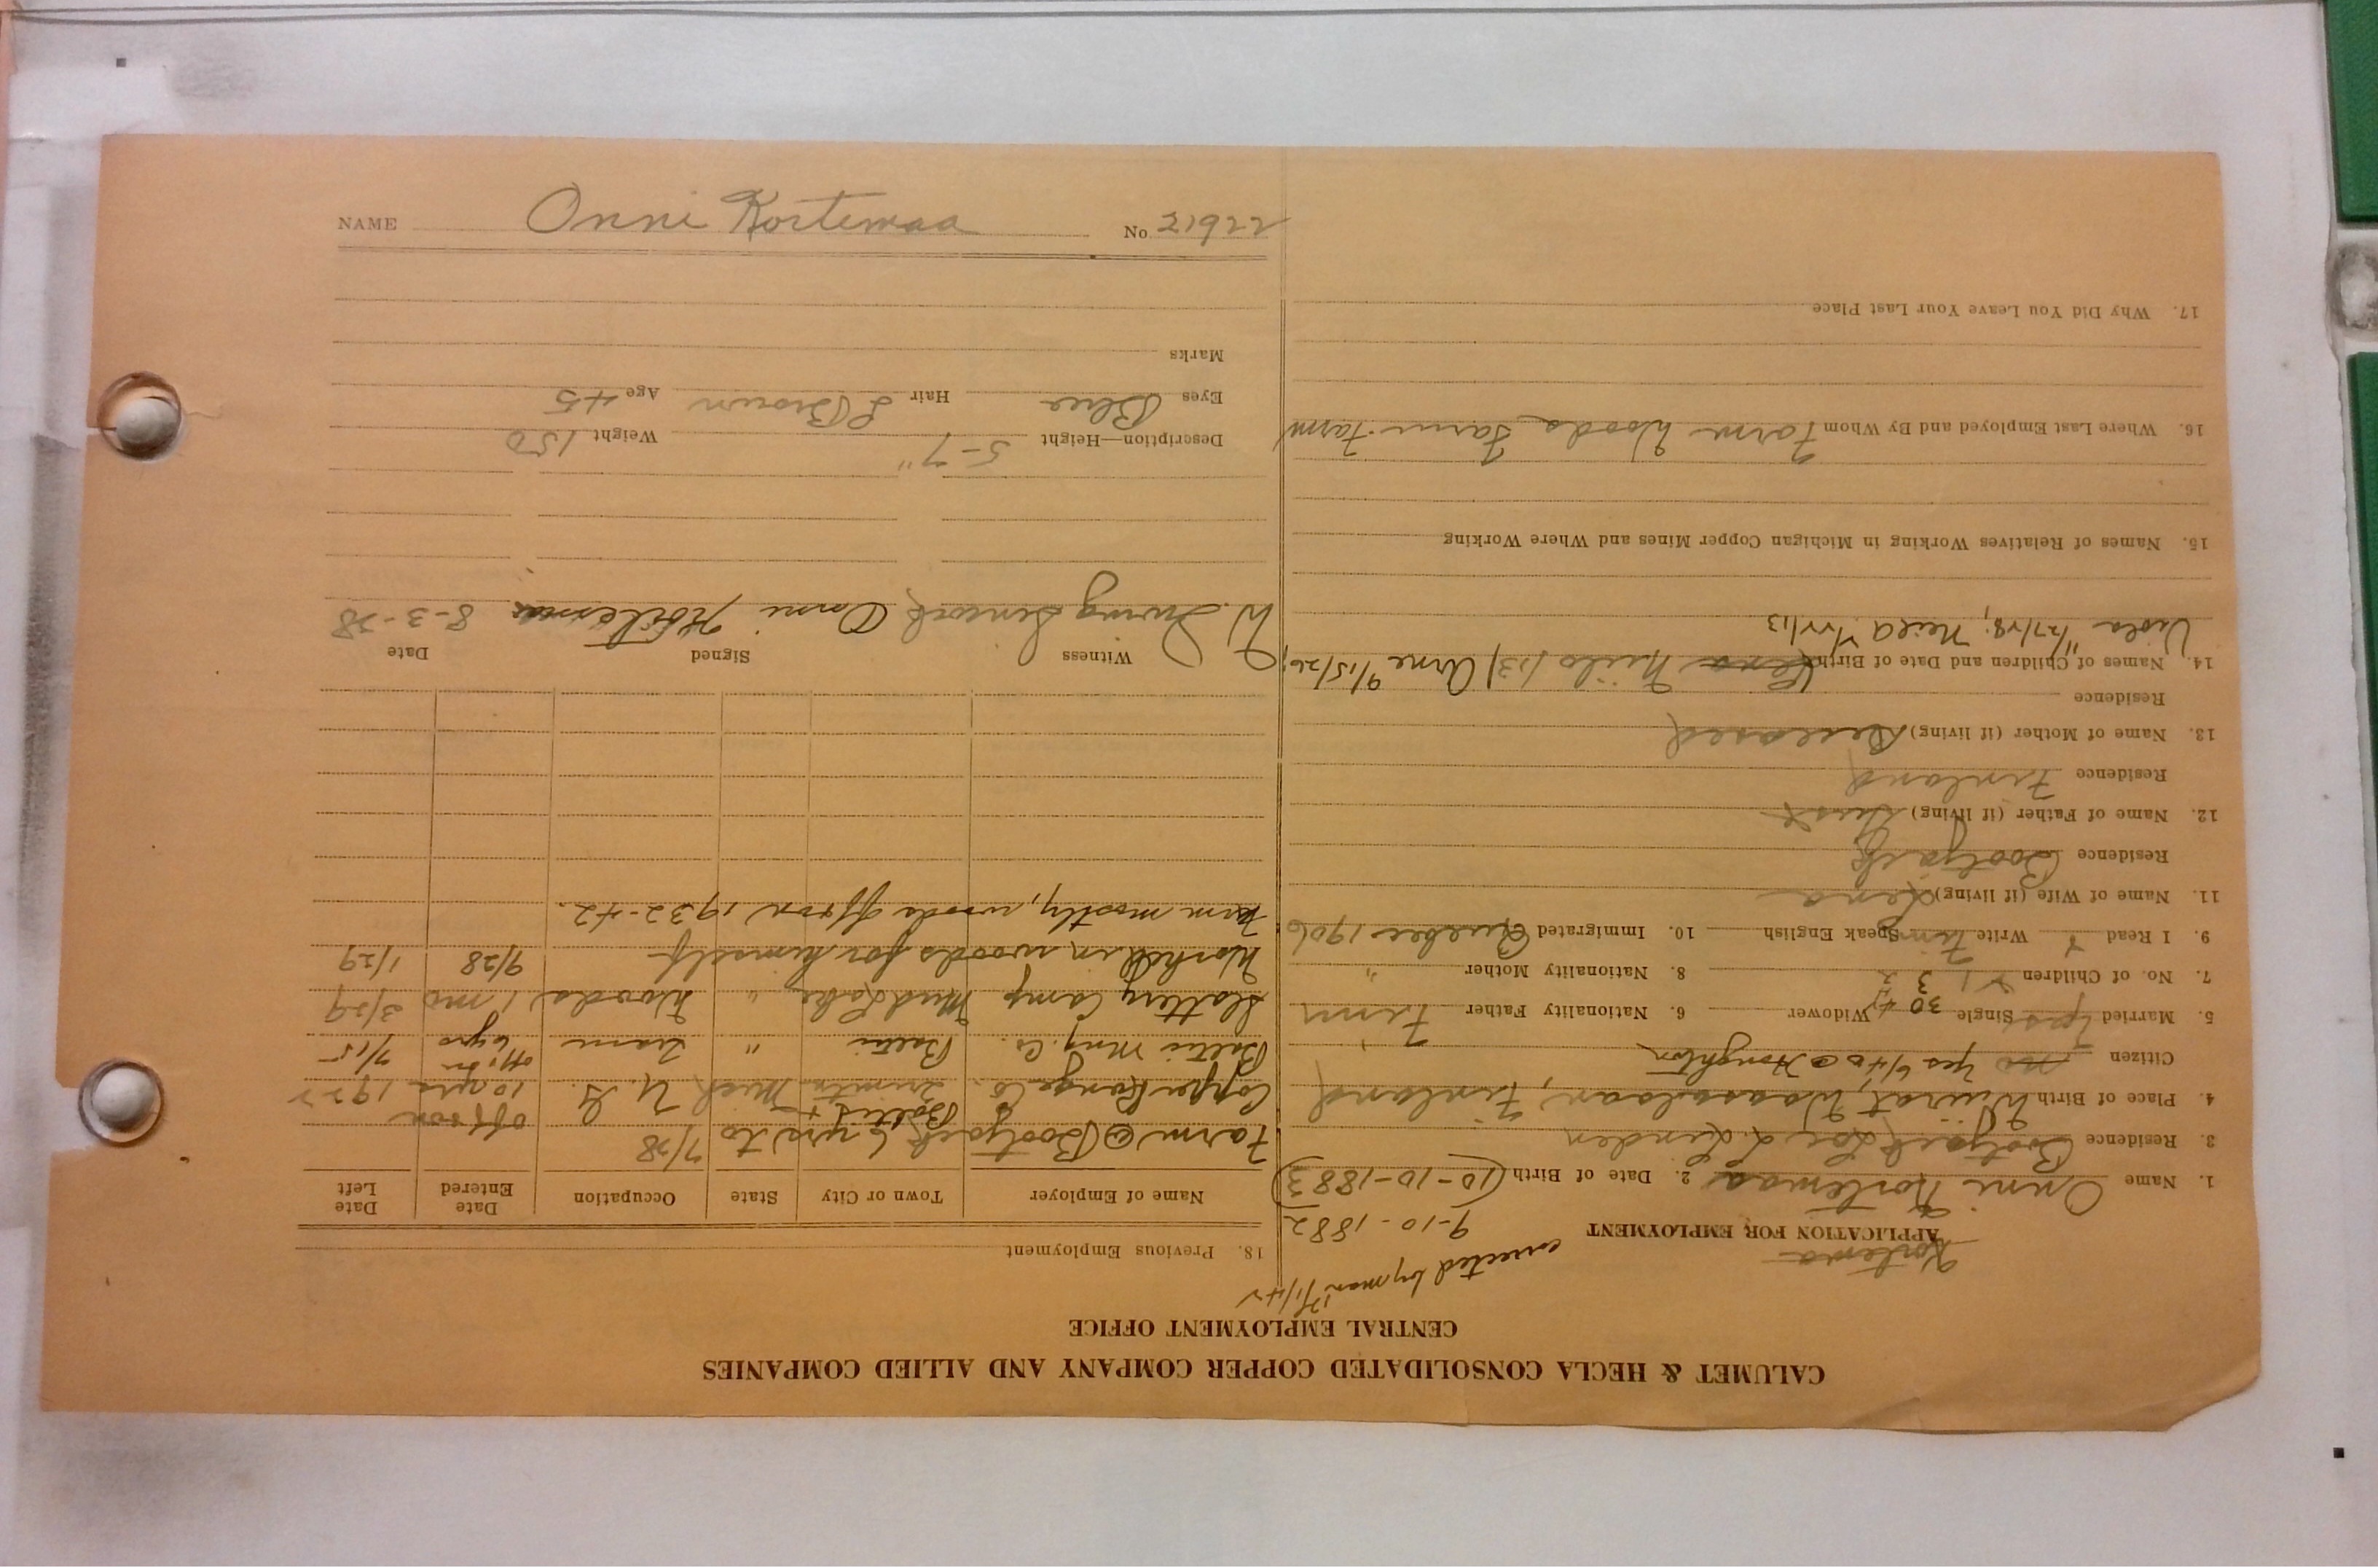 CALUMET & HECLA CONSOLIDATED COPPER COMPANY AND ALLIED COMPANIES
CENTRAL EMPLOYMENT OFFICE
Kortema
corrected by man
APPLICATION FOR EMPLOYMENT
9-10-1882
1. Name Onni Kortemaa 2. Date of Birth (10-10-1883)
3. Residence Bootjack Loc L. Linden
4. Place of Birth Wiurat, Waasalaan, Finland
Citizen no yes Houghton
5. Married yes Single Widower 6. Nationality Father Finn
7. No. of Children 8. Nationality Mother "
9. I Read Write Finn Speak English 10. Immigrated Quebec 1906
11. Name of Wife (if living) Lena
Residence Bootjack
12. Name of Father (if living) Gust
Residence Finland
13. Name of Mother (if living) Deceased
Residence
14. Names of Children and Date of Birth Niilo (13) Arne 9/15/26;
Viola 11/27/28; Neila
15. Names of Relatives Working in Michigan Copper Mines and Where Working
16. Where Last Employed and By Whom Farm Woods Farm-Farm
17. Why Did You Leave Your Last Place
18. Previous Employment
Name of Employer Town or City State Occupation Date Entered Date Left
Farm @ Bootjack 6 yrs to 7/38
Copper Range Co. Baltic + Mich U.G. off + on 10 yrs 1922
Baltic Mng. Co. Baltic " Tram 7/15
Slattery Camp Mud Lake " Woods 1 mo 3/29
Worked in woods for himself 9/28 1/29
Farm mostly, woods off + on 1932-42.
Witness Signed Date
W. Irving Onni Kortemaa 8-3-38
Description—Height 5-7" Weight 150
Eyes Blue Hair L Brown Age 45
Marks
NAME Onni Kortemaa No 21922